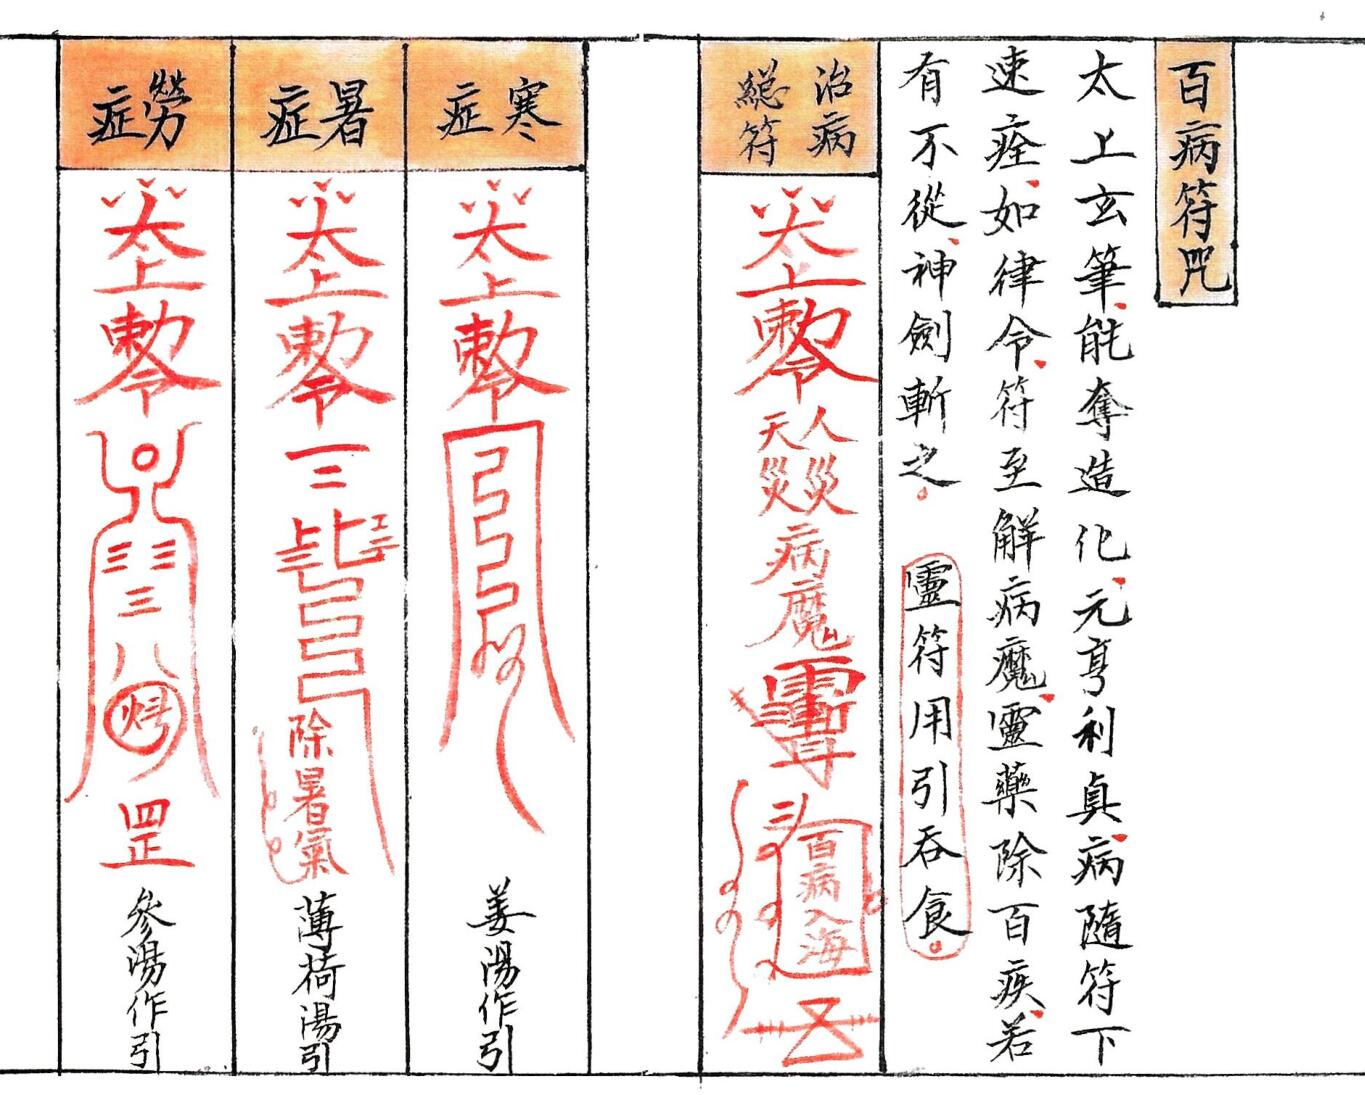 百病符咒
太上玄筆能奪造化元亨利真病隨符下
速痊如律令符至解病魔靈藥除百疾若
有不從神劍斬之 靈符用引吞食
治病
總符
太上敕令
人災
天災
病魔
百病入海
寒症
太上敕令
姜湯作引
暑症
太上敕令
除暑氣
薄荷湯引
勞症
太上敕令
罡
參湯作引